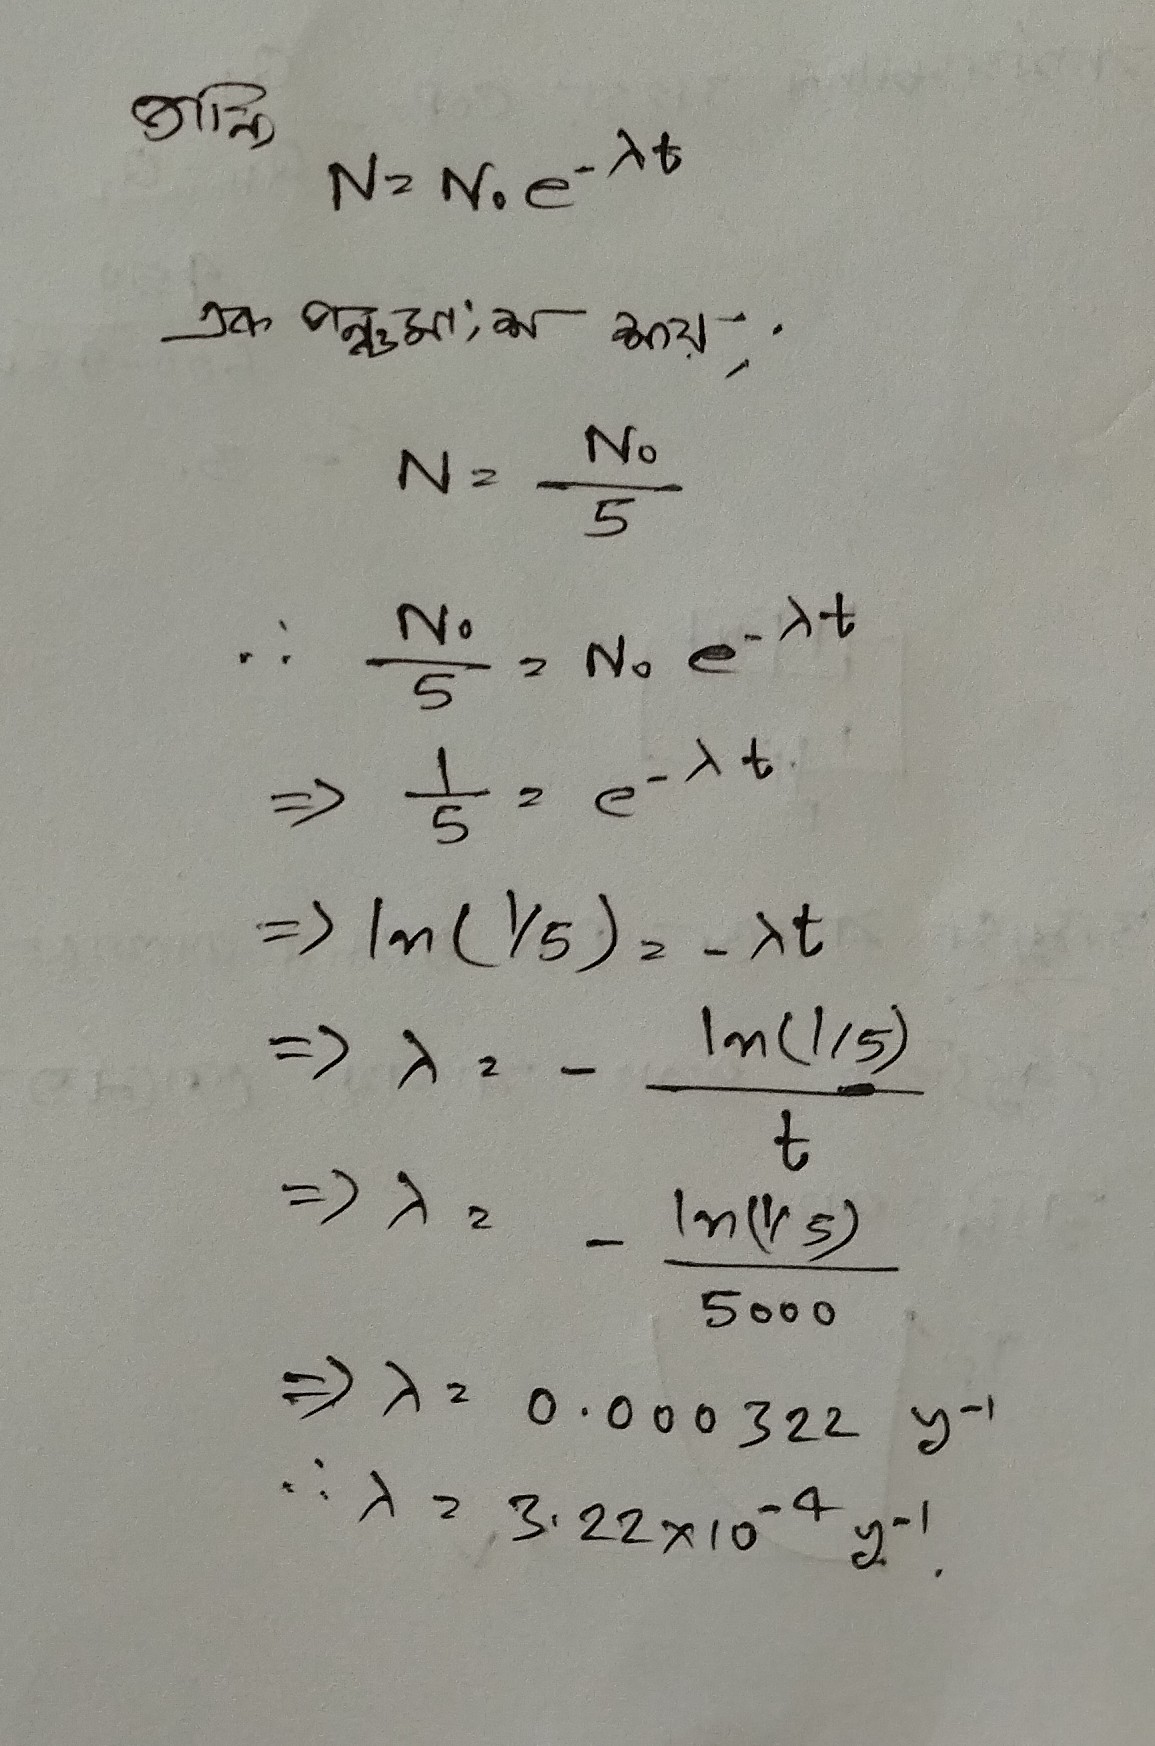 জানি
N = N₀ e^-λt
এক পঞ্চমাংশ ক্ষয়,
N = N₀/5
∴ N₀/5 = N₀ e^-λt
=> 1/5 = e^-λt
=> ln(1/5) = -λt
=> λ = - ln(1/5)/t
=> λ = - ln(1/5)/5000
=> λ = 0.000322 y^-1
∴ λ = 3.22×10^-4 y^-1.